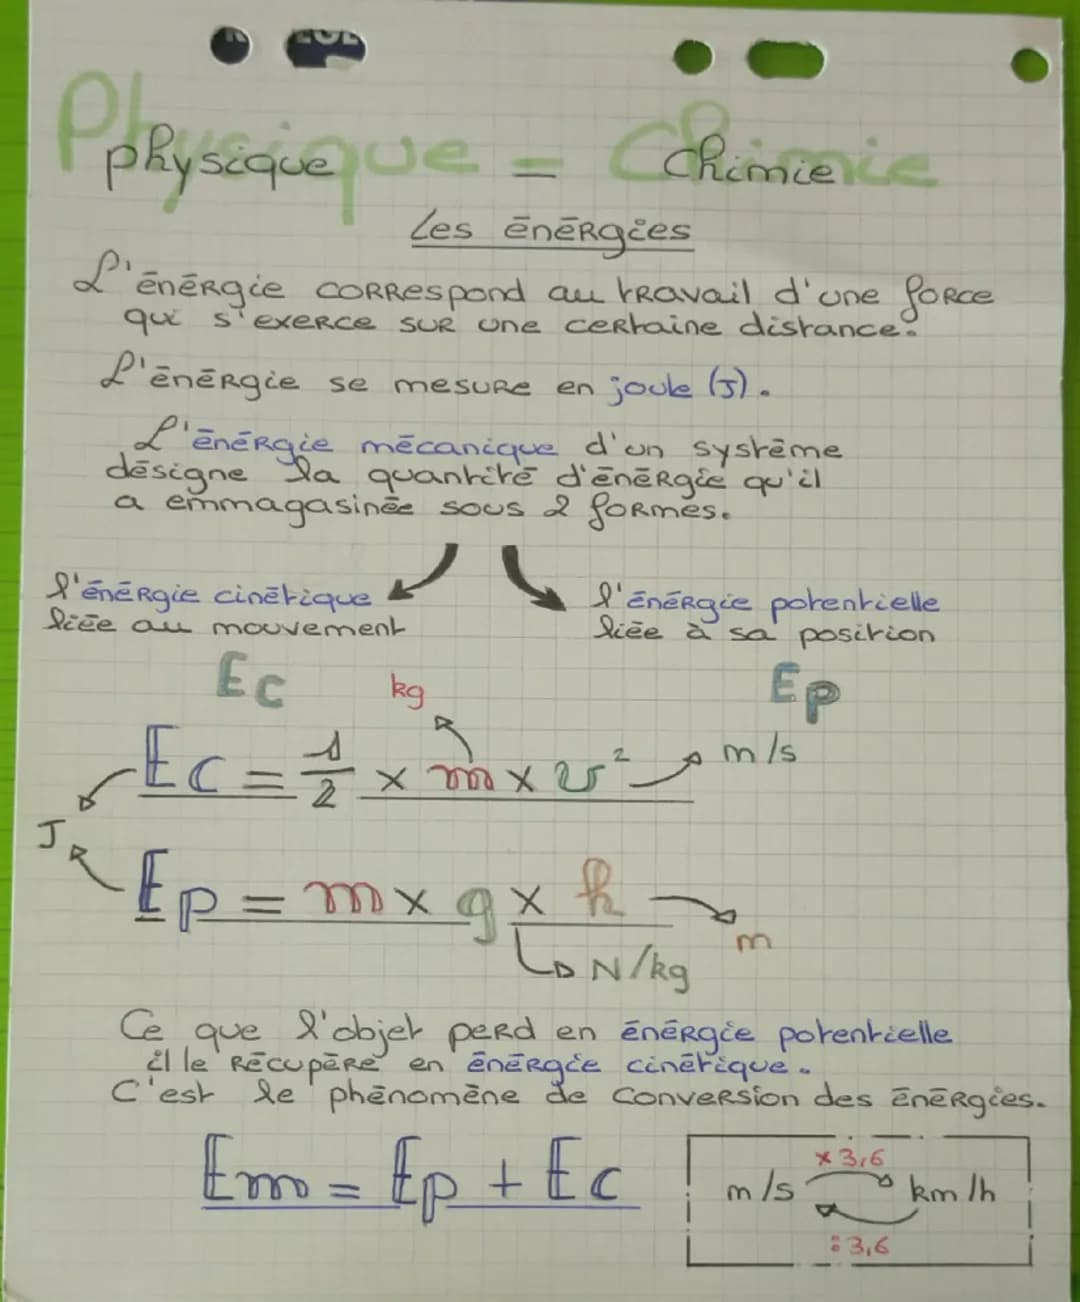 Physique = Chimie
physique chimie
Les énérgies
L'énérgie correspond au travail d'une force
qui s'exerce sur une certaine distance.
L'énérgie se mesure en joule (J).
L'énérgie mécanique d'un système
désigne la quantité d'énérgie qu'il
a emmagasinée sous 2 formes.
l'énérgie cinétique
liée au mouvement
l'énérgie potentielle
liée à sa position
Ec
kg
Ep
Ec = 1/2 × m × v² m/s
J
Ep = m × g × h
m
N/kg
Ce que l'objet perd en énérgie potentielle
il le récupère en énérgie cinétique.
C'est le phénomène de conversion des énérgies.
Em = Ep + Ec
× 3,6
m/s km/h
: 3,6